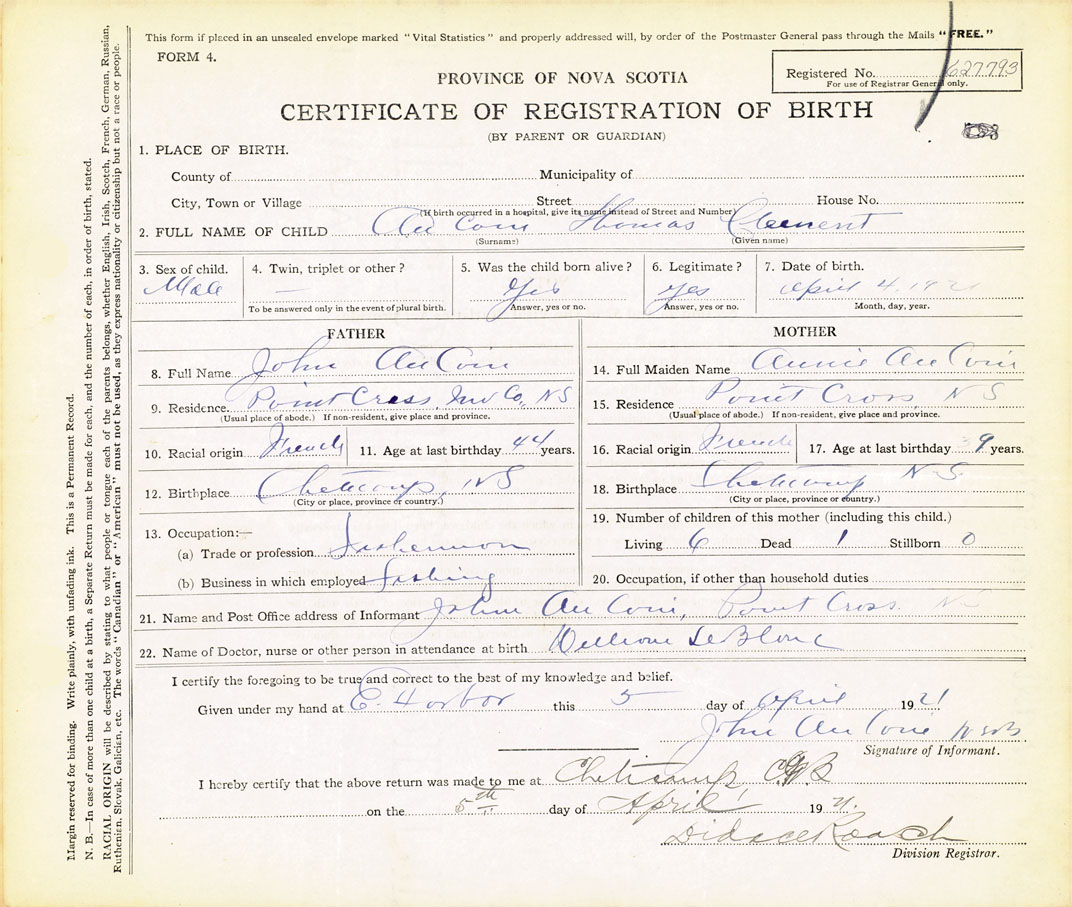 This form if placed in an unsealed envelope marked "Vital Statistics" and properly addressed will, by order of the Postmaster General pass through the Mails "FREE."
FORM 4.
Registered No. 627793
For use of Registrar General only.
PROVINCE OF NOVA SCOTIA
CERTIFICATE OF REGISTRATION OF BIRTH
(BY PARENT OR GUARDIAN)
1. PLACE OF BIRTH.
County of Municipality of
City, Town or Village Street House No.
(If birth occurred in a hospital, give its name instead of Street and Number)
2. FULL NAME OF CHILD Au Coin Thomas Clement
(Surname) (Given name)
3. Sex of child. 4. Twin, triplet or other? 5. Was the child born alive? 6. Legitimate? 7. Date of birth.
Male — Yes yes April 4, 1921
To be answered only in the event of plural birth. Answer, yes or no. Answer, yes or no. Month, day, year.
FATHER
8. Full Name John Au Coin
9. Residence. Point Cross, Inv Co, N S
(Usual place of abode.) If non-resident, give place and province.
10. Racial origin French 11. Age at last birthday 44 years.
12. Birthplace Cheticamp, N S
(City or place, province or country.)
13. Occupation:—
(a) Trade or profession Fisherman
(b) Business in which employed Fishing
MOTHER
14. Full Maiden Name Annie Au Coin
15. Residence Point Cross, N S
(Usual place of abode.) If non-resident, give place and province.
16. Racial origin French 17. Age at last birthday 39 years.
18. Birthplace Cheticamp N S
(City or place, province or country.)
19. Number of children of this mother (including this child.)
Living 6 Dead 1 Stillborn 0
20. Occupation, if other than household duties
21. Name and Post Office address of Informant John Au Coin, Point Cross NS
22. Name of Doctor, nurse or other person in attendance at birth William LeBlanc
I certify the foregoing to be true and correct to the best of my knowledge and belief.
Given under my hand at E. Harbor this 5 day of April 1921
John Au Coin
Signature of Informant.
I hereby certify that the above return was made to me at Cheticamp
on the 5th day of April 1921.
Didace Roach
Division Registrar.
Margin reserved for binding. Write plainly, with unfading ink. This is a Permanent Record.
N. B.—In case of more than one child at a birth, a Separate Return must be made for each, and the number of each, in order of birth, stated.
RACIAL ORIGIN will be described by stating to what people or tongue each of the parents belongs, whether English, Irish, Scotch, French, German, Russian,
Ruthenian, Slovak, Galician, etc. The words "Canadian" or "American" must not be used, as they express nationality or citizenship but not a race or people.